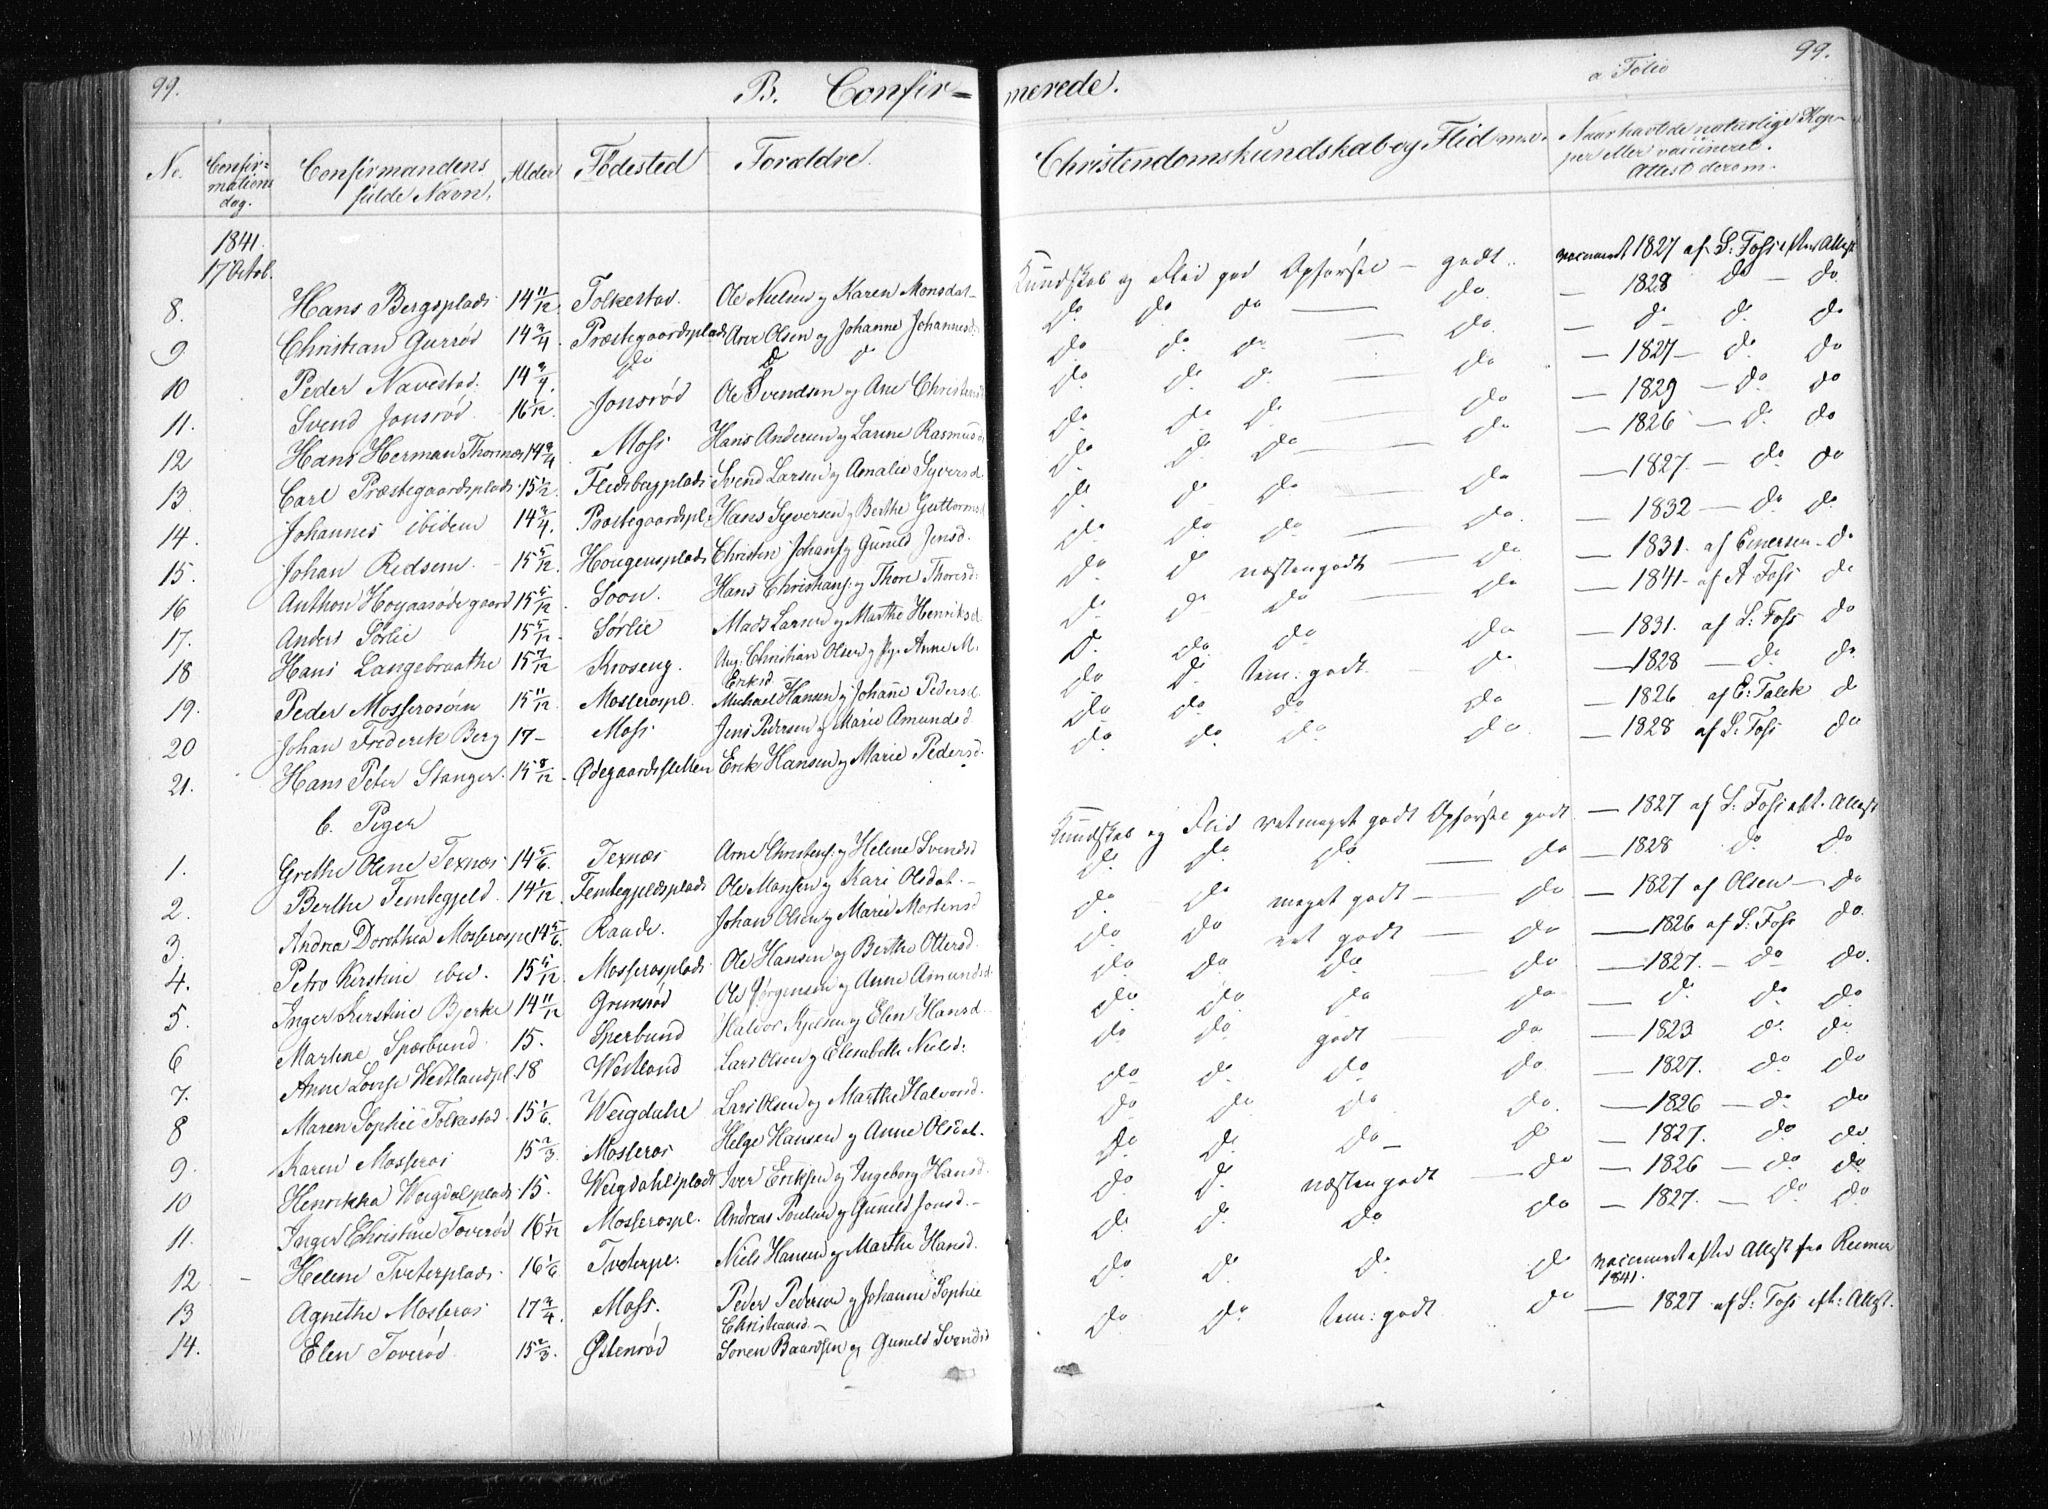 99.
B. Confir=
merede.
a Folio
99.
No.
Confir=
mations
dag.
Confirmandens
fulde Navn.
Alder
Födested
Forældre.
Christendomskundskab og Flid m.v.
Naar havt de naturlige Kop-
per eller vaccineret.
Attest derom.
1841.
17 Octob.
8. Hans Bergsplads 14 11/12 Folkestad. Ole Nielsen og Karen Monsdat- Kundskab og Flid god Opførsel — godt.. vaccineret 1827 af S: Foss efter Attest
9 Christian Gurrød 14 3/4 Præstegaardsplads Arve Olsen og Johanne Johannesd. do do do — do — 1828 do — do
10 Peder Navestad. 14 3/4. do do do do do do — do — do — do do
11. Svend Jonsrød 16 1/12. Jonsrød Ole Svendsen og Ane Christensd do do do — do — 1827 — do do
12 Hans Herman Thorenæs 14 3/4 Moss Hans Andersen og Larine Rasmusd do do do — do — 1829 — do do
13. Carl Præstegaardsplads 15 1/2. Fledsbergplads Svend Larsen og Amalie Syversd do do do — do — 1826 — do do
14. Johannes ibidem 14 3/4. Præstegaardspl. Hans Syversen og Berthe Guttormsd do do do — do — 1827. — do do
15. Johan Redsem — 15 5/12. Hougensplads Christen Johans. og Gunild Jensd. do do do — do. — 1832 — do do.
16 Anthon Hoyaasødegaard 15 5/12. Soon. Hans Christians. og Thore Thoresd. do do næsten godt — do — 1831. af Emersen — do
17. Anders Sørlie 15 5/12. Sørlie Mads Larsen og Marthe Henriksd do do do — do — 1841 — af A Foss do
18 Hans Langebraathe 15 7/12 Kroseng. Ung. Christian Olsen og Pg. Anne M.
Eriksd — do do do do — 1831. af S: Foss do
19. Peder Mosserosøen 15 11/12 Mosserospl. Michael Hansen og Johanne Pedersd. do do tem: godt — do — 1828 — do do.
20 Johan Frederik Berg 17 — Moss Jens Pedersen og Marie Amundsd do do do do — 1826 af E: Falck do
21. Hans Peter Stanger. 15 8/12. Ødegaardsletten Erik Hansen og Marie Pedersd. do do do do — 1828 af S: Foss do
b. Piger
1. Grethe Oline Texnæs 14 5/6. Texnæs Arne Christens. og Helene Svendsd Kundskab og Flid ret meget godt Opførsel godt — 1827 af S: Foss eft. Attest
2. Berthe Femtegjeld. 14 1/12. Femtegjeldsplads Ole Monsen og Kari Olsdat. — do do do — do — 1828 do do
3. Andrea Dorothea Mosserospl 14 5/6. Raade. Johan Olsen og Marie Mortensd do do meget godt — do — 1827 af Olsen — do
4. Petro Kerstine ibid. 15 5/12. Mosserosplads Ole Hansen og Berthe Ottersd. do do ret godt — do — 1826 af S: Foss do.
5. Inger Kerstine Bjerke 14 11/12 Grunsrød Ole Jørgensen og Anne Amundsd. do do do — do — 1827. — do do.
6 Marthe Spærbund. 15. Sperbund Halvor Kjelsen og Elen Hansd. do do do do — do. do do
7. Anne Lovise Vestlandspl. 18 Westland Lars Olsen og Elisabeth Nielsd: do do godt — do — 1823 do. do
8 Maren Sophie Folkestad. 15 1/6. Weigdahl Lars Olsen og Marthe Halvorsd. do do do do — 1827. do do
9. Karen Mosseros 15 2/3. Mosseros Helge Hansen og Anne Olsdat. do do do do. — 1826 — do. do
10 Henrikka Weigdalplads 15. Weigdahlsplads Iver Eriksen og Ingeborg Hansd. do do do — do — 1827. do do.
11. Inger Christine Toverød 16 1/12 Mosserospl. Andreas Poulsen og Gunild Jonsd. — do do næsten godt — do — 1826 — do do.
12 — Helene Tveterplads. 16 1/6 Tveterpl. Niels Hansen og Marthe Hansd. do do do do — 1827. — do do
13 Agnethe Mosseros 17 3/4 Moss. Peder Pedersen og Johanne Sophie
Christiansd. — do do do do vaccineret efter Attest fra Reimer
1841.
14. Elen Toverød. 15 2/3. Østenrød Søren Baardsen og Gunild Svendsd do do tem: godt do — 1827 af S: Foss eft: Attest.